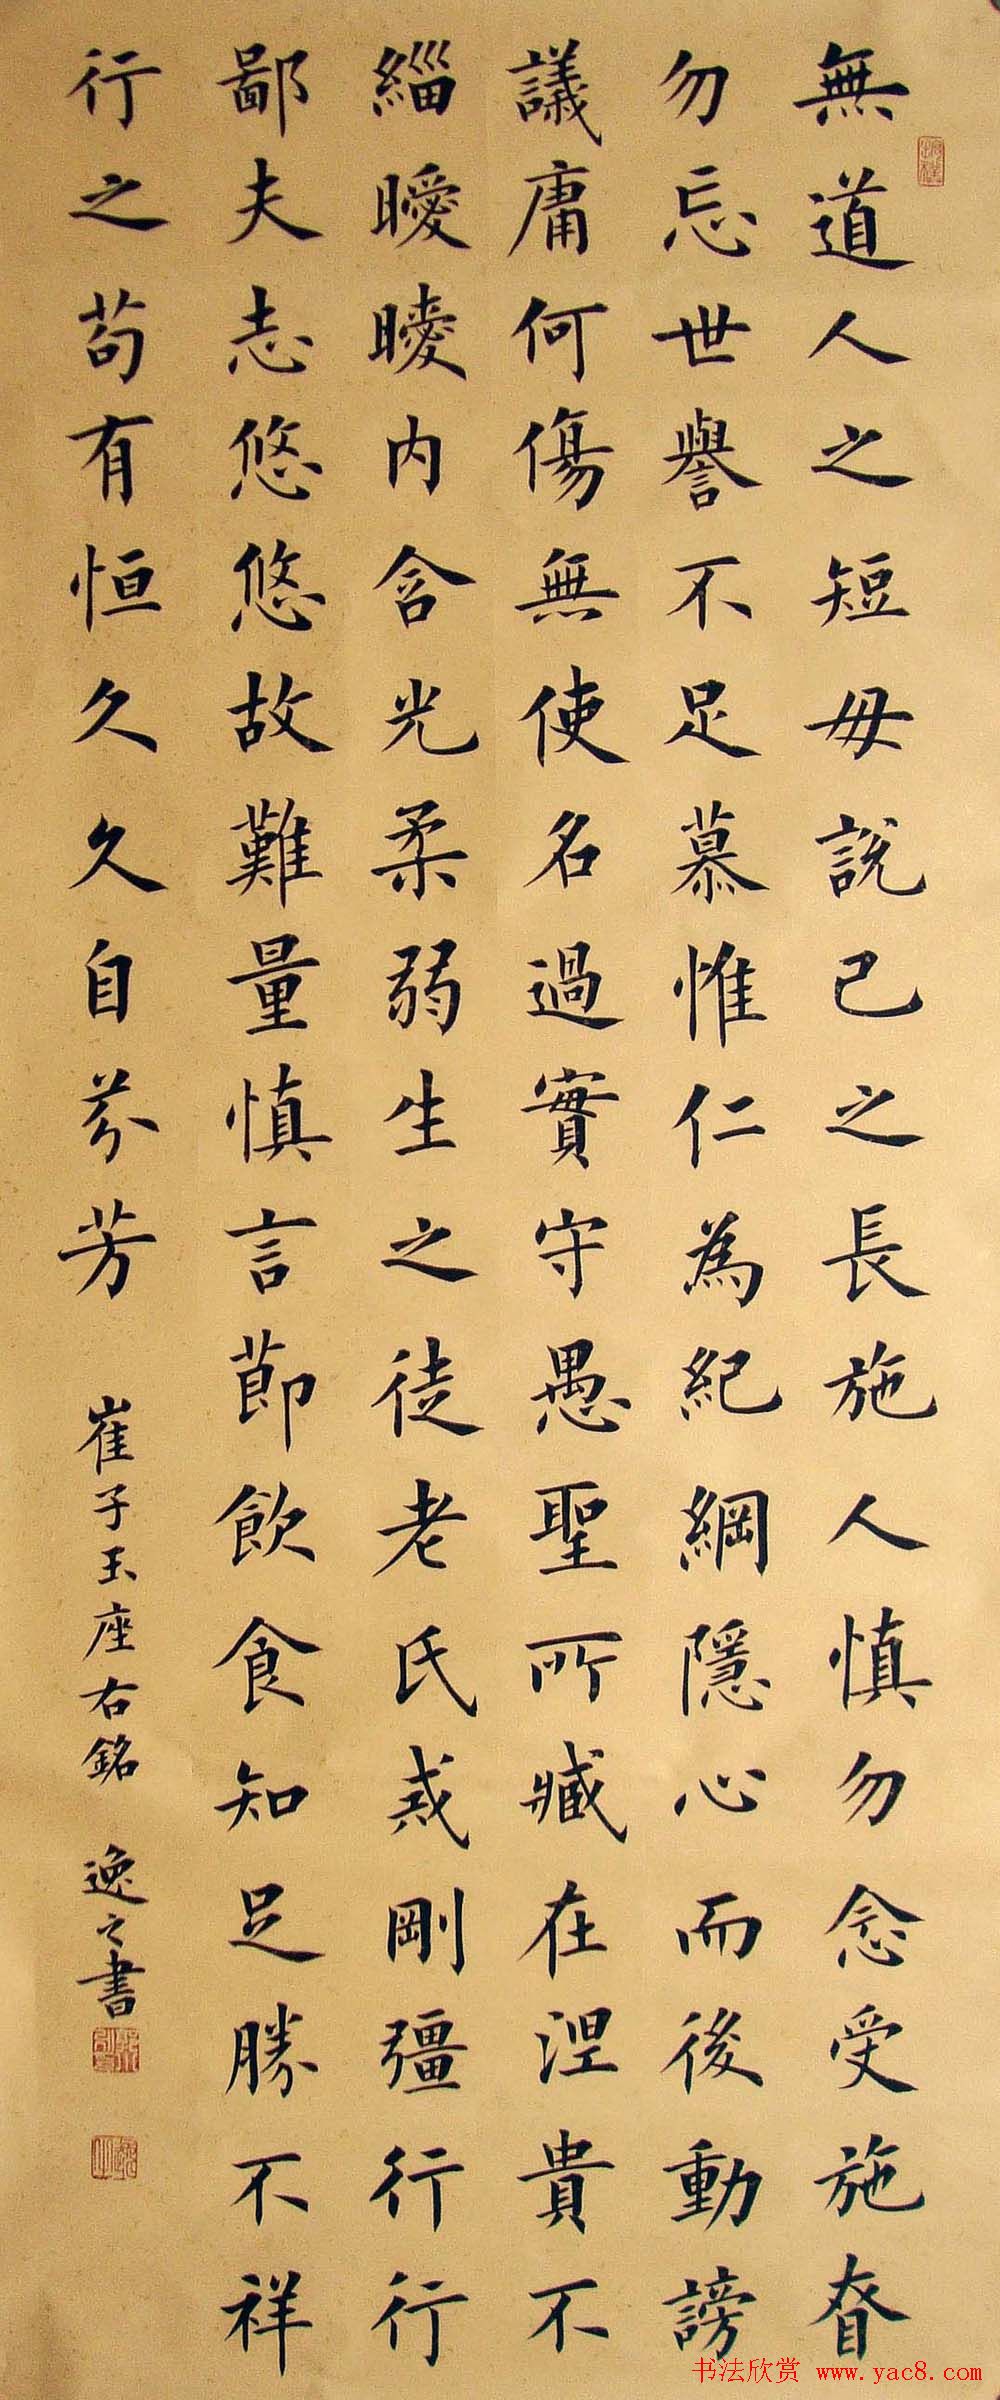 無道人之短毋說己之長施人慎勿念受施眘
勿忘世譽不足慕惟仁為紀綱隱心而後動謗
議庸何傷無使名過實守愚聖所臧在涅貴不
緇曖曖内含光柔弱生之徒老氏戒剛彊行行
鄙夫志悠悠故難量慎言節飲食知足勝不祥
行之苟有恒久久自芬芳
崔子玉座右銘 逸之書
书法欣赏 www.yac8.com